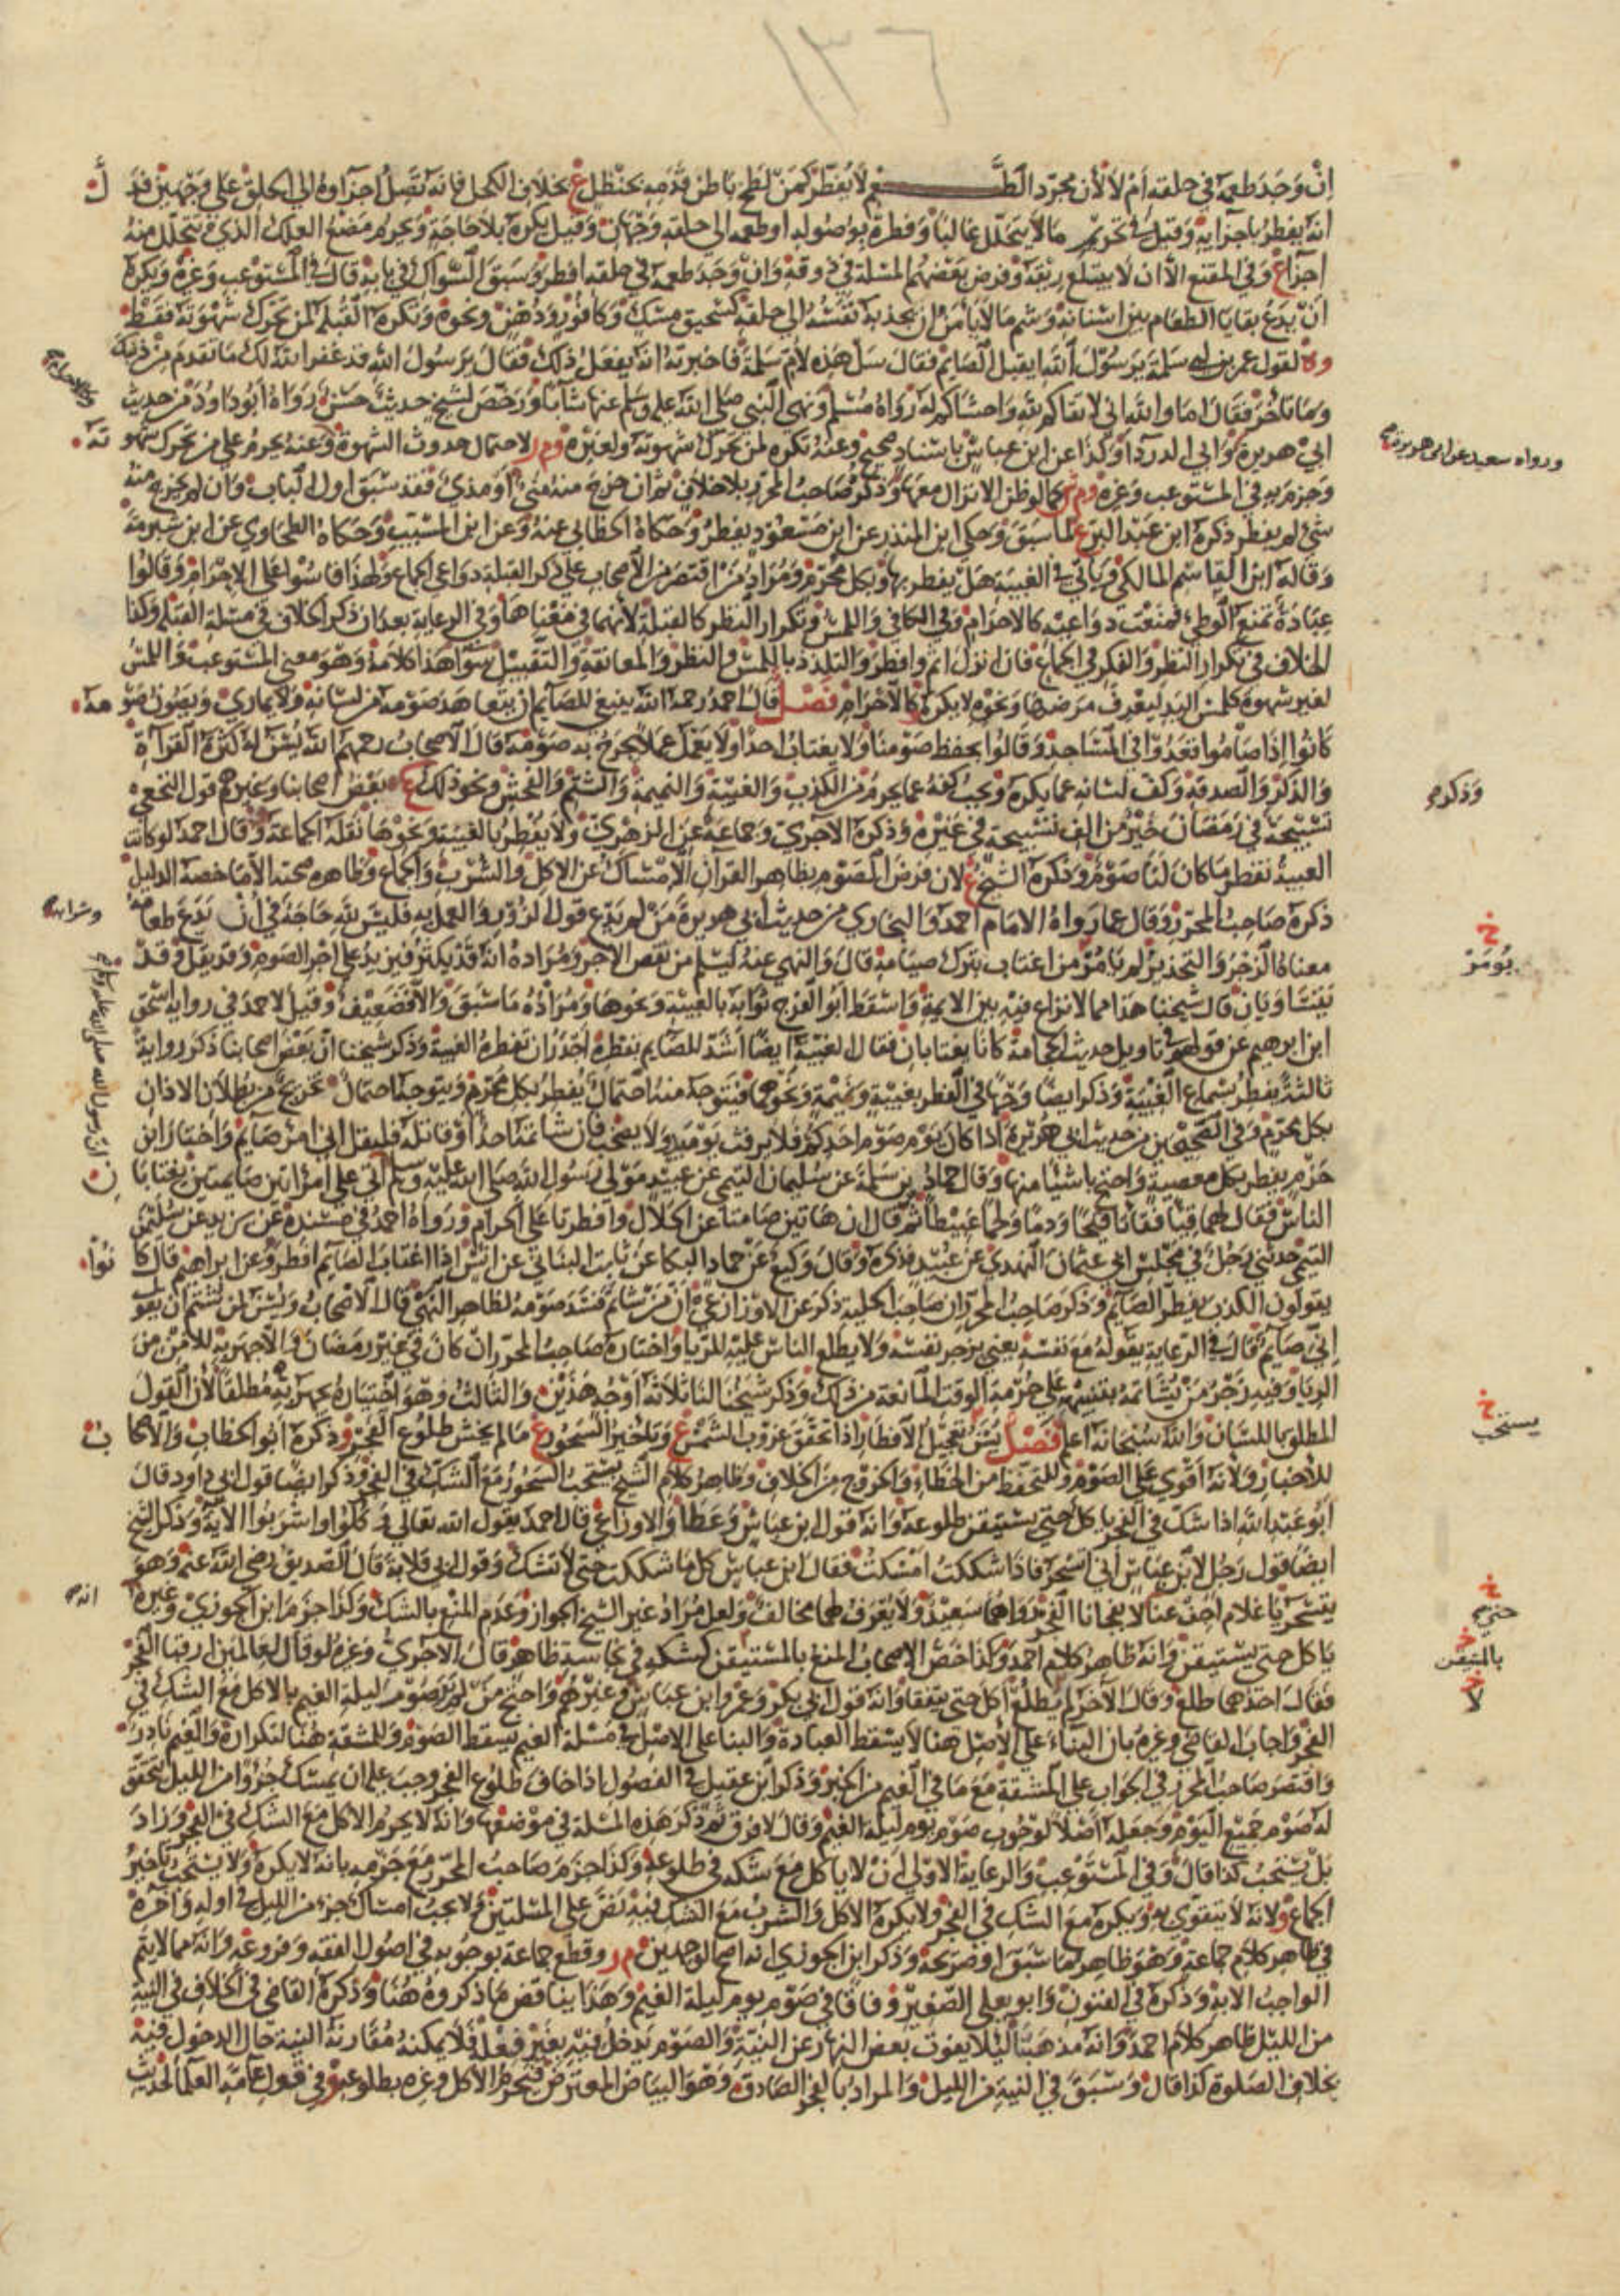 ١٣٦
إن وجد طعمه في حلقه أم لا لأن مجرد الطعم لا يفطر كمن لطخ باطن قدمه بحنظل ع بخلاف الكحل فإنه تصل أجزاؤه إلى الحلق على وجهين قد
أنه يفطر بأجزايه وقيل في تحريم ما لا يتحلل غالبا وفطره بوصوله أو طعمه إلى حلقه وجهان وقيل يكره بلا حاجة ويحرم مضغ العلك الذي يتحلل منه
أجزا ع وفي المقنع إلا أن لا يبتلع ريقه وفرض بعضهم المسلة في ذوقه وإن وجد طعمه في حلقه أفطر وسبق السواك في بابه قال في المستوعب وغيره ويكره
أن يدع بقايا الطعام بين أسنانه وشم ما لا يأمن أن يجذبه نفسه إلى حلقه كسحيق مسك وكافور ودهن ونحوه وتكره القبلة لمن تحرك شهوته فقط
و لقول عمر بن أبي سلمة يرسول الله أيقبل الصايم فقال سل هذه لأم سلمة فأخبرته أنه يفعل ذلك فقال يرسول الله قد غفر الله لك ما تقدم من ذنبك
وما تأخر فقال أما والله إني لأتقاكم لله وأخشاكم له رواه مسلم ونهى النبي صلى الله عليه وسلم عنها شابا ورخص لشيخ حديث حسن رواه أبو داود من حديث
أبي هريرة وأبي الدرداء وكذا عن ابن عباس بإسناد صحيح وعنه تكره لمن تحرك شهوته ولغيره وم ر لاحتمال حدوث الشهوة وعنه يحرم على من تحرك شهو ته
ورواه سعيد عن أبي هريرة
وجزم به في المستوعب وغيره كما لو ظن الإنزال معها وذكره صاحب المحرر بلا خلاف ثم إن خرج منه مني أو مذي فقد سبق أول الباب وإن لم يخرج منه
شي لم يفطر ذكره ابن عبد البر ع لما سبق وحكى ابن المنذر عن ابن مسعود يفطر وحكاه الخطابي عنه وعن ابن المسيب وحكاه الطحاوي عن ابن شبرمة
وقاله ابن القاسم المالكي ويأتي في الغيبة هل يفطر بها وبكل محرم ومراد من اقتصر من الأصحاب على ذكر القبلة دواعي الجماع ولهذا قاسوا على الإحرام وقالوا
عبادة تمنع الوطي فمنعت دواعيه كالإحرام وفي الكافي واللمس وتكرار النظر كالقبلة لأنهما في معناها وفي الرعاية بعد أن ذكر الخلاف في مسلة القبلة وكذا
الخلاف في تكرار النظر والفكر في الجماع فإن أنزل أثم وأفطر والتلذذ باللمس والنظر والمعانقة والتقبيل سوا هذا كلامه وهو معنى المستوعب واللمس
لغير شهوة كلمس اليد ليعرف مرضها ونحوه لا يكره كالإحرام فصل قال أحمد رحمه الله ينبغي للصايم أن يتعاهد صومه من لسانه ولا يماري ويصون صو مه
كانوا إذا صاموا قعدوا في المساجد وقالوا نحفظ صومنا ولا يغتاب أحدا ولا يعمل عملا يجرح به صومه قال الأصحاب رحمهم الله يسن له كثرة القراة
والذكر والصدقة وكف لسانه عما يكره ويجب كفه عما يحرم من الكذب والغيبة والنميمة والشتم والفحش ونحو ذلك ع بعض أصحابنا وغيرهم قول النخعي
وذكره
تسبيحة في رمضان خير من ألف تسبيحة في غيره وذكره الآجري وجماعة عن الزهري ولا يفطر بالغيبة ونحوها نقله الجماعة وقال أحمد لو كانت
الغيبة تفطر ما كان لنا صوم وذكره الشيخ ع لأن فرض الصوم بظاهر القرآن الإمساك عن الأكل والشرب والجماع وظاهره صحته إلا ما خصه الدليل
ذكره صاحب المحرر وقال عما رواه الإمام أحمد والبخاري من حديث أبي هريرة من لم يدع قول الزور والعمل به فليس لله حاجة في أن يدع طعامه
وشرابه
يومر
معناه الزجر والتحذير لم يأمر من اغتاب بترك صيامه قال والنهي عنه ليسلم من نقص الأجر ومراده أنه قد يكثر فيزيد على أجر الصوم وقد يقل وقد
يتساويان قال شيخنا هذا مما لا نزاع فيه بين الايمة وأسقط أبو الفرج ثوابه بالغيبة ونحوها ومراده ما سبق وإلا فضعيف وقيل لأحمد في رواية إسحق
ابن إبرهيم عن قولهم في تأويل حديث الحجامة كانا يغتابان فقال الغيبة أيضا أشد للصايم بفطره أجدر أن تفطره الغيبة وذكر شيخنا أن بعض أصحابنا ذكر رواية
ثالثة يفطر بسماع الغيبة وذكر أيضا وجها في الفطر بغيبة ونميمة ونحوهما فيتوجه منه احتمال يفطر بكل محرم ويتوجه احتمال تخريج من بطلان الأذان
بكل محرم وفي الصحيحين من حديث أبي هريرة إذا كان يوم صوم أحدكم فلا يرفث يوميذ ولا يصخب فإن شاتمه أحد أو قاتله فليقل إني امرؤ صايم واختار ابن
حزم يفطر بكل معصية واحتج بأشيا منها وقال حماد بن سلمة عن سليمان التيمي عن عبيد مولى رسول الله صلى الله عليه وسلم أتى على امرأتين صايمتين يغتابا ن
أن رسول الله صلى الله عليه وسلم
الناس فقال لهما قيئا فقاءتا قيحا ودما ولحما عبيطا ثم قال إن هاتين صامتا عن الحلال وأفطرتا على الحرام ورواه أحمد في مسنده عن يزيد عن سليمن
التيمي حدثني رجل في مجلس أبي عثمان النهدي عن عبيد فذكره وقال وكيع عن حماد البكا عن ثابت البناني عن أنس إذا اغتاب الصايم أفطر وعن إبراهيم قال كا نوا
يقولون الكذب يفطر الصايم وذكر صاحب المحرر أن صاحب الحلية ذكر عن الأوزاعي أن من شاتم فسد صومه لظاهر النهي قال الأصحاب ويسن لمن شتم أن يقول
إني صايم قال في الرعاية يقوله مع نفسه يعني يزجر نفسه ولا يطلع الناس عليه للريا واختاره صاحب المحرر إن كان في غير رمضان وإلا جهر به للأمن من
الريا وفيه زجر من يشاتمه بتنبيهه على حرمة الوقت المانعة من ذلك وذكر شيخنا لنا ثلاثة أوجه هذين والثالث وهو اختياره يجهر به مطلقا لأن القول
المطلق باللسان والله سبحانه أعلم فصل يسن تعجيل الإفطار إذا تحقق غروب الشمس ع وتأخير السحور ع ما لم يخش طلوع الفجر وذكره أبو الخطاب والأصحا ب
للأخبار ولأنه أقوى على الصوم وللتحفظ من الخطاء والخروج من الخلاف وظاهر كلام الشيخ يستحب السحور مع الشك في الفجر وذكر أيضا قول أبي داود قال
يستحب
أبو عبد الله إذا شك في الفجر يأكل حتى يستيقن طلوعه وأنه قول ابن عباس وعطا والأوزاعي قال أحمد يقول الله تعالى وكلوا واشربوا الآية وذكر الشيخ
أيضا قول رجل لابن عباس إني أتسحر فإذا شككت أمسكت فقال ابن عباس كل ما شككت حتى لا تشك وقول أبي قلابة قال الصديق رضي الله عنه وهو
يتسحر يا غلام أجف عنا لا يفجأنا الفجر رواهما سعيد ولا يعرف لهما مخالف ولعل مراد غير الشيخ الجواز وعدم المنع بالشك وكذا جزم ابن الجوزي وغيره
أنه
حتى
يأكل حتى يستيقن وأنه ظاهر كلام أحمد وكذا خص الأصحاب المنع بالمستيقن كشكه في نجاسة طاهر قال الآجري وغيره لو قال لعالمين ارقبا الفجر
بالمتيقن
فقال أحدهما طلع وقال الآخر لم يطلع أكل حتى يتفقا وأنه قول أبي بكر وعمر وابن عباس وغيرهم واحتج من لم ير صوم ليلة الغيم بالأكل مع الشك في
لا
الفجر وأجاب القاضي وغيره بأن البناء على الأصل هنا لا يسقط العبادة والبنا على الأصل في مسلة الغيم يسقط الصوم وللمشقة هنا لتكراره والغيم نادر
واقتصر صاحب المحرر في الجواب على المشقة مع ما في الغيم من الخبر وذكر ابن عقيل في الفصول إذا خاف طلوع الفجر وجب عليه أن يمسك جزوا من الليل ليتحقق
له صوم جميع اليوم وجعله أصلا لوجوب صوم يوم ليلة الغيم وقال لا فرق ثم ذكر هذه المسلة في موضعها وأنه لا يحرم الأكل مع الشك في الفجر وزاد
بل يستحب كذا قال وفي المستوعب والرعاية الأولى أن لا يأكل مع شكه في طلوعه وكذا جزم صاحب المحرر مع جزمه بأنه لا يكره ولا يستحب تأخير
الجماع ولأنه لا يتقوى به ويكره مع الشك في الفجر ولا يكره الأكل والشرب مع الشك فيه نص على المسلتين ولا يجب إمساك جزء من الليل في أوله وآخره
في ظاهر كلام جماعة وهو ظاهر ما سبق أو صريحه وذكر ابن الجوزي أنه أصح الوجهين م ر وقطع جماعة بوجوبه في أصول الفقه وفروعه وأنه مما لا يتم
الواجب إلا به وذكره في الفنون وأبو يعلى الصغير وفاقا في صوم يوم ليلة الغيم وهذا يناقض ما ذكروه هنا وذكره القاضي في الخلاف في النية
من الليل ظاهر كلام أحمد وأنه مذهبنا ليلا يفوت بعض النهار عن النية والصوم يدخل فيه بغير فعله فلا يمكنه مقارنة النية حال الدخول فيه
بخلاف الصلوة كذا قال وسبق في النية من الليل والمراد بالفجر الصادق وهو البياض المعترض فيحرم الأكل وغيره بطلوعه في قول عامة العلما لحديث